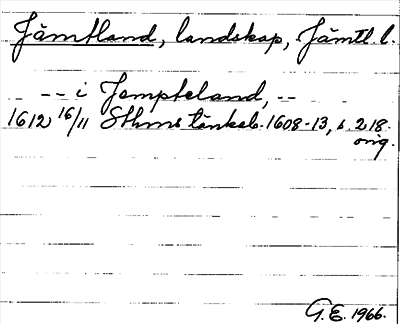 Jämtland, landskap, Jämtl. l.
-- i Jempteland, --
1612 16/11 Sthms tänkeb. 1608-13, s. 218.
orig.
G.E. 1966.